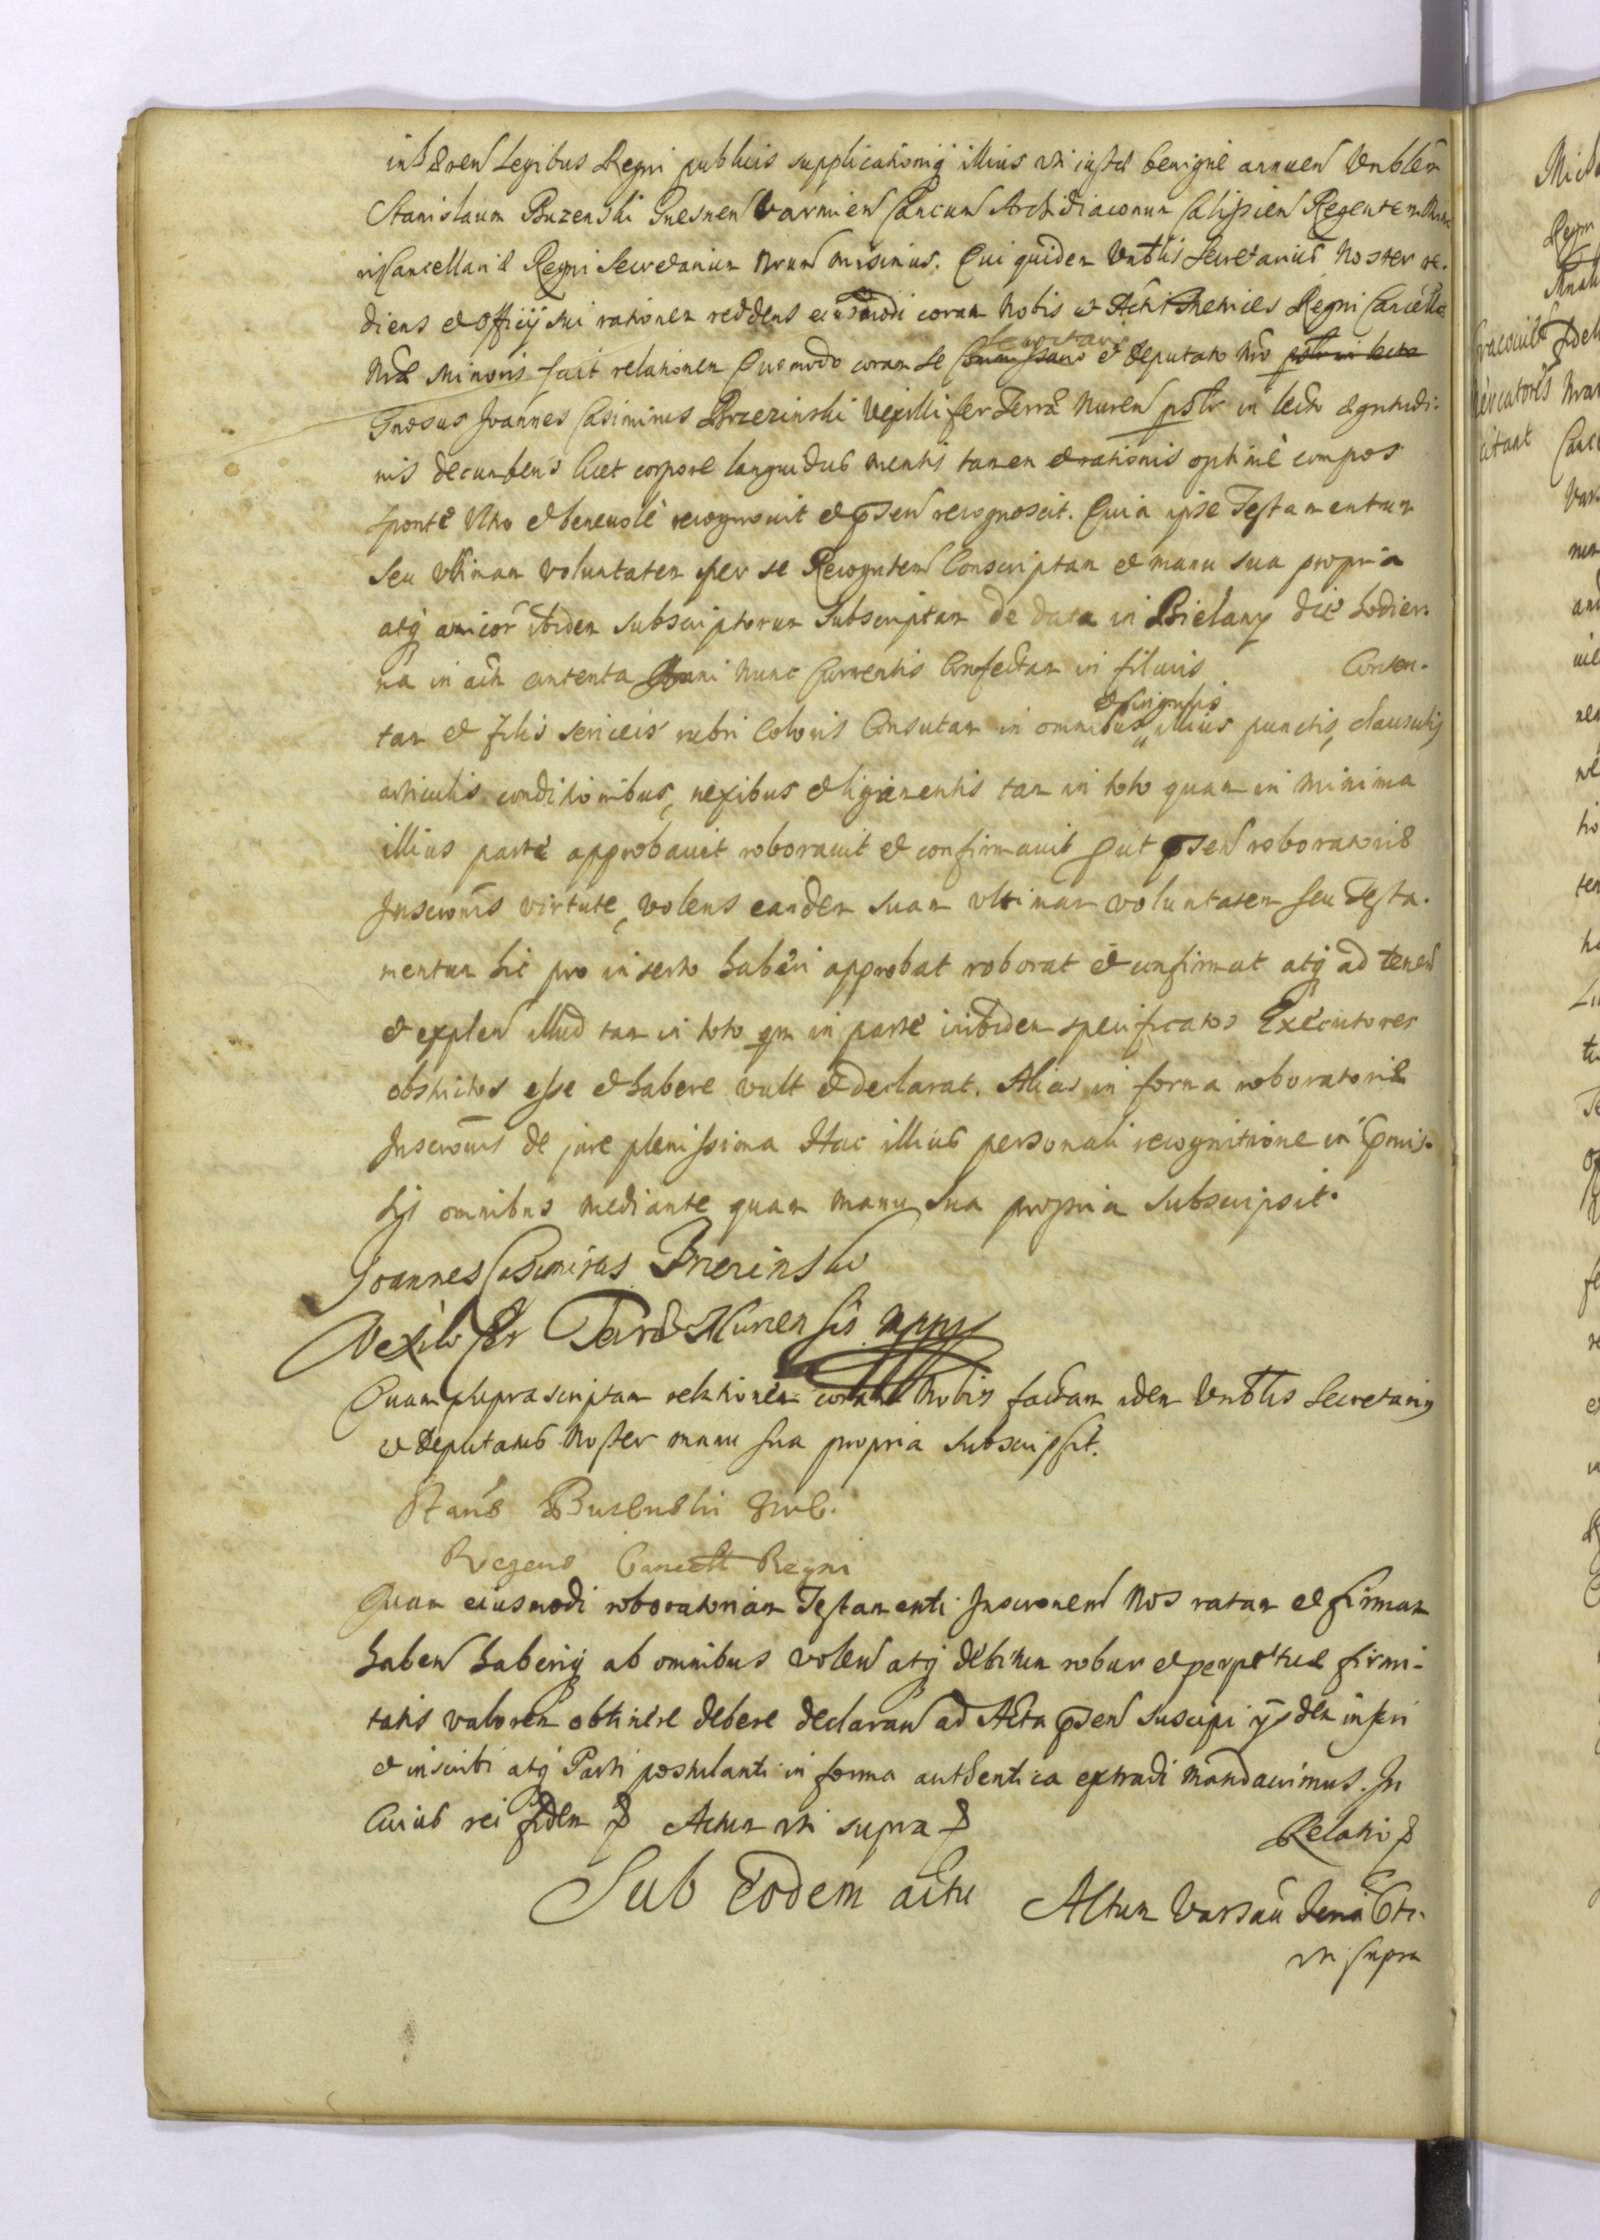 inhæren Legibus Regni publicis supplicationiq illius uti iustæ benigne annuen Vnblem
Stanislaum Buzenski Gnesnen Varmien Cancum Archidiaconum Calissien Regentem
riCancellariæ Regni Secretarium Nrum misimus. Qui quidem Vnblis Secretarius Noster re.
diens et Officij sui rationem reddens eiusmodi coram Nobis et Actis Regni Cancella
Nræ Minoris fecit relationem Quomodo coram se Secretario et deputato Nro
Gnosus Joannes Casimirus Brzezinski Vexillifer Terræ Nuren pstr in lecto ægritudi.
nis decumbens licet corpore languidus mentis tamen et rationis optimè compos
sponte Vltro et beneuolè recognouit et psen recognoscit. Quia ipse Testamentum
Seu Vltimam Voluntatem per se Recognten Conscriptam et manu sua propria
atq amicor ibidem subscriptorum Subscriptam de data in Bielany die hodier.
na in actu contenta Anni Nunc Currentis Confectam in filuris Conten.
tam et filis sericeis rubri Coloris Consutam in omnibus et singulis illius punctis, clausulis
articulis conditionibus, nexibus et ligamentis tam in toto quam in Minima
illius parte approbauit roborauit et confirmauit put psen roboratoriæ
Inscrōnis virtute, volens eandem suam vltimam voluntatem seu Testa.
mentum hic pro inserto haberi approbat roborat et confirmat atq ad tenen
et explen illud tam in toto qm in parte inibidem specificatos Executores
obstrictos esse et habere vult et declarat. Alias in forma roboratoriæ
Inscrōnis de jure plenissima Hac illius personali recognitione in pmis.
sis omnibus mediante quam manu sua propria subscripsit.
Joannes Casimirus Brzezinski
Vexilifer Terræ Nurensis mpp
Quam suprascriptam relationem coram Nobis factam idem Vnblis Secretarius
et Deputatus Noster manu sua propria subscripsit.
Stanis Buzenski
Regens Cancell Regni
Quam eiusmodi roboratoriam Testamenti Inscrōnem Nos ratam et firmam
haben haberiq ab omnibus volen atq debitum robur et perpetuæ firmi-
tatis valorem obtinere debere declaran ad Acta psen suscipi ijsdem inseri
et inscribi atq Parti postulanti in forma authentica extradi mandauimus. In
Cuius rei fidem Actum uti supra
Relatio
Sub Eodem actu Actum Varsau
uti supra